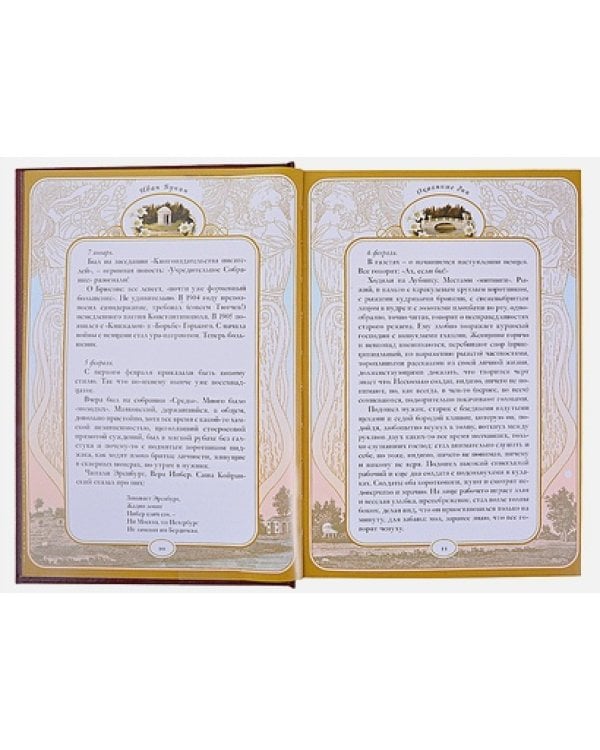 Иван Бунин
7 января.
Был на заседании «Книгоиздательства писате-
лей», – огромная новость: «Учредительное Собра-
ние» разогнали!
О Брюсове: все левеет, «почти уже форменный
большевик». Не удивительно. В 1904 году превоз-
носил самодержавие, требовал (совсем Тютчев!)
немедленного взятия Константинополя. В 1905 по-
явился с «Кинжалом» в «Борьбе» Горького. С начала
войны с немцами стал ура-патриотом. Теперь боль-
шевик.
5 февраля.
С первого февраля приказали быть новому
стилю. Так что по-ихнему нынче уже восемнад-
цатое.
Вчера был на собрании «Среды». Много было
«молодых». Маяковский, державшийся, в общем,
довольно пристойно, хотя все время с какой-то хам-
ской независимостью, щеголявший стоеросовой
прямотой суждений, был в мягкой рубахе без гал-
стука и почему-то с поднятым воротником пид-
жака, как ходят плохо бритые личности, живущие
в скверных номерах, по утрам в нужник.
Читали Эренбург, Вера Инбер. Саша Койран-
ский сказал про них:
Завывает Эренбург,
Жадно ловит
Инбер клич его, –
Ни Москва, ни Петербург
Не заменят им Бердичева.
10
Окаянные дни
6 февраля.
В газетах – о начавшемся наступлении немцев.
Все говорят: «Ах, если бы!»
Ходили на Лубянку. Местами «митинги». Ры-
жий, в пальто с каракулевым круглым воротником,
с рыжими кудрявыми бровями, с свежевыбритым
лицом в пудре и с золотыми пломбами во рту, одно-
образно, точно читая, говорит о несправедливостях
старого режима. Ему злобно возражает курносый
господин с выпуклыми глазами. Женщины горячо
и невпопад вмешиваются, перебивают спор (прин-
ципиальный, по выражению рыжего) частностями,
торопливыми рассказами из своей личной жизни,
долженствующими доказать, что творится черт
знает что. Несколько солдат, видимо, ничего не по-
нимают, но, как всегда, в чем-то (вернее, во всем)
сомневаются, подозрительно покачивают головами.
Подошел мужик, старик с бледными вздутыми
щеками и седой бородой клином, которую он, по-
дойдя, любопытно всунул в толпу, воткнул между
рукавов двух каких-то все время молчавших, толь-
ко слушавших господ; стал внимательно слушать и
себе, но тоже, видимо, ничего не понимая, ничему
и никому не веря. Подошел высокий синеглазый
рабочий и еще два солдата с подсолнухами в кула-
ках. Солдаты оба коротконоги, жуют и смотрят не-
доверчиво и мрачно. На лице рабочего играет злая
и веселая улыбка, пренебрежение, стал возле толпы
боком, делая вид, что он приостановился только на
минутку, для забавы: мол, заранее знаю, что все го-
ворят чепуху.
11